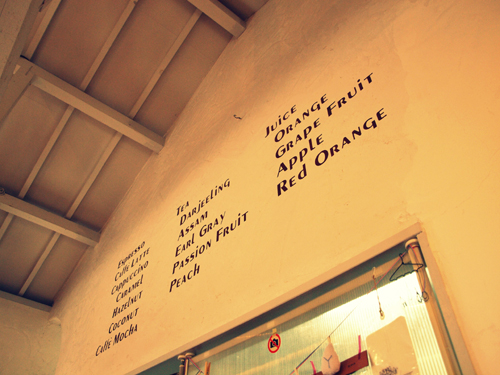 Espresso
Caffe Latte
Cappuccino
Caramel
Hazelnut
Coconut
Caffe Mocha
Tea
Darjeeling
Assam
Earl Gray
Passion Fruit
Peach
Juice
Orange
Grape Fruit
Apple
Red Orange